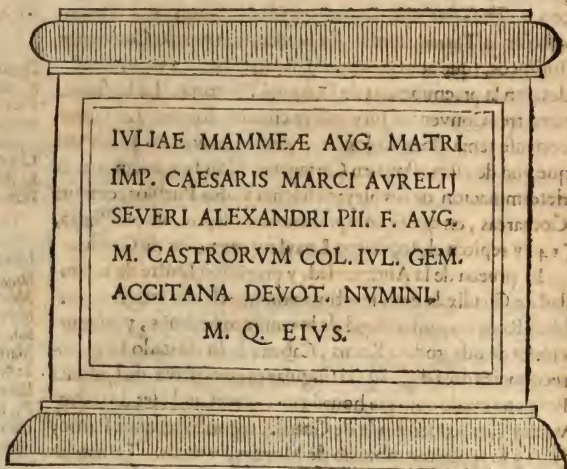 IVLIAE MAMMEÆ AVG. MATRI
IMP. CAESARIS MARCI AVRELIJ
SEVERI ALEXANDRI PII. F. AVG.
M. CASTRORVM COL. IVL. GEM.
ACCITANA DEVOT. NVMINI
M. Q. EIVS.